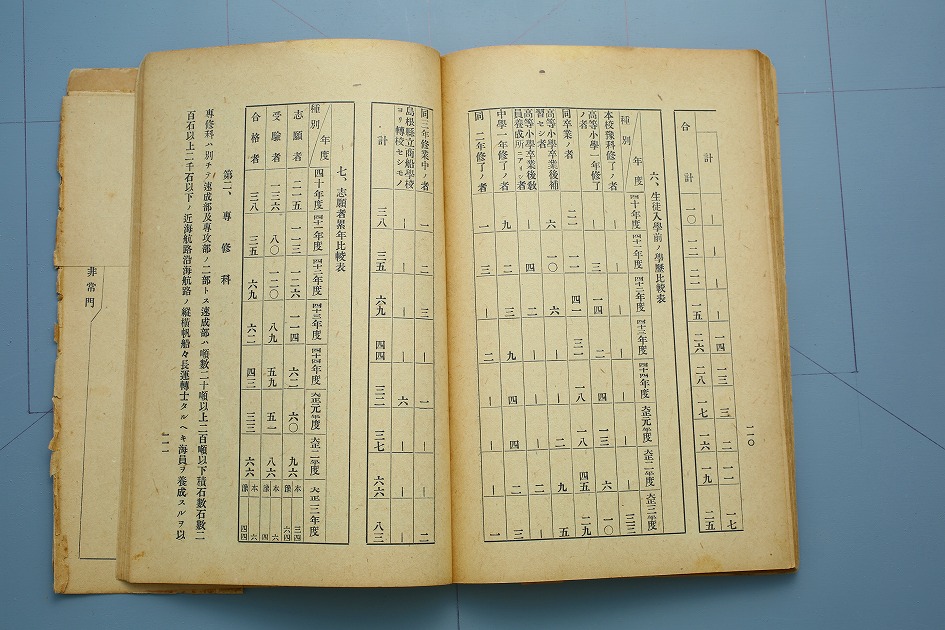 計 ｜ 一四 一三 三 二 一一 一七
合計 一〇 二二 二一 一五 二六 二八 一七 一六 一九 二五
六、生徒入學前ノ學歷比較表
種別 年度 四十年度 四十一年度 四十二年度 四十三年度 四十四年度 大正元年度 大正二年度 大正三年度
本校豫科修了ノ者 ｜ ｜ ｜ ｜ ｜ ｜ ｜ 三三
高等小學一年修了ノ者 ｜ 三 一四 二 一三 六 一〇
同卒業ノ者 二一 一〇 四一 三一 一八 一八 四五 二九
高等小學卒業後補習セシ者 六 六 ｜ ｜ 二 九 五
高等小學卒業後敎員養成所ニアリシ者 ｜ 四 二 ｜ ｜ ｜ 二 ｜
中學一年修了ノ者 九 二 三 九 四 四 二 三
同 二年修了ノ者 一 三 二 二 ｜ ｜ ｜ 一
二一〇
同三年修業中ノ者 一 二 三 ｜ 一 ｜ ｜ 二
島根縣立商船學校ヨリ轉校セシモノ ｜ ｜ ｜ ｜ 六 ｜ ｜ ｜
計 三八 三五 六九 四四 三二 三七 六六 八三
七、志願者累年比較表
種別 年度 四十年度 四十一年度 四十二年度 四十三年度 四十四年度 大正元年度 大正二年度 大正三年度
志願者 二一五 一一三 一二六 一一四 六二 六〇 九六 本 三四 豫 六四
受驗者 一三六 八〇 一二〇 八九 五九 五一 八六 本 豫
合格者 三八 三五 六九 六二 四三 三三 六六 本 六 豫 四四
第二、專修科
專修科ハ別チテ速成部及專攻部ノ二部トス速成部ハ噸數二十噸以上二百噸以下積石數石數二
百石以上二千石以下ノ近海航路沿海航路ノ縱橫帆船々長運轉士タルヘキ海員ヲ養成スルヲ以
二一一
非常門